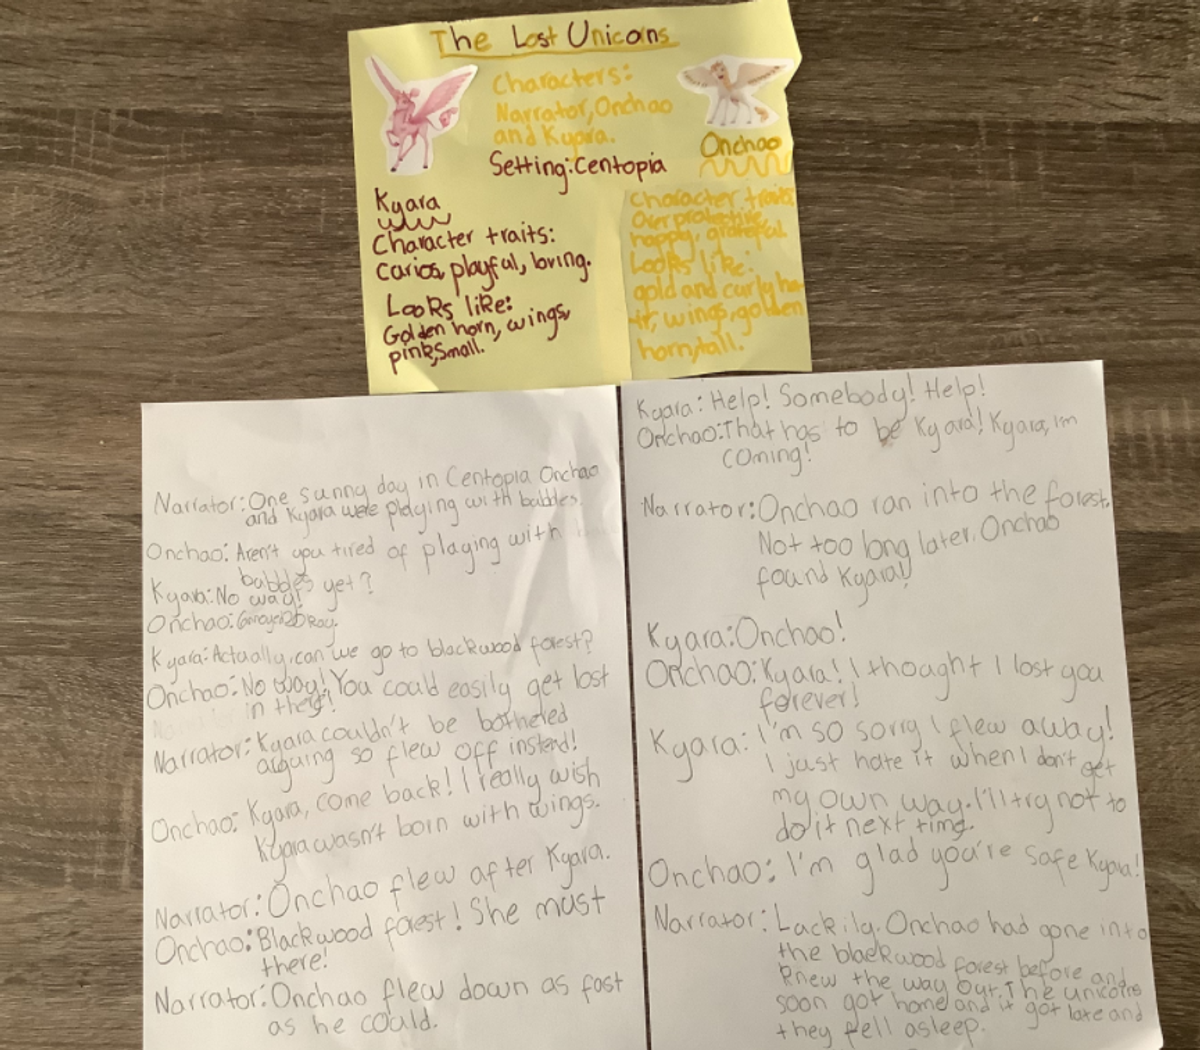 The Lost Unicons
Characters:
Narrator, Onchao
and Kyara.
Setting: Centopia
Onchao
Kyara
Character traits:
carios, playful, loving.
Looks like:
Golden horn, wings,
pink, small.
Character traits:
Over protective,
happy, grateful.
Looks like:
gold and curly ha-
ir, wings, golden
horn, tall.
Narrator: One sunny day in Centopia Onchao
and Kyara were playing with babbles.
Onchao: Aren't you tired of playing with
babbles yet?
Kyara: No way!
Onchao:
Kyara: Actually, can we go to blackwood forest?
Onchao: No way! You could easily get lost
in there!
Narrator: Kyara couldn't be bothered
arguing so flew off instead!
Onchao: Kyara, come back! I really wish
Kyara wasn't born with wings.
Narrator: Onchao flew after Kyara.
Onchao: Blackwood forest! She must
there!
Narrator: Onchao flew down as fast
as he could.
Kyara: Help! Somebody! Help!
Onchao: That has to be Kyara! Kyara, I'm
coming!
Narrator: Onchao ran into the forest.
Not too long later, Onchao
found Kyara!
Kyara: Onchao!
Onchao: Kyara! I thought I lost you
forever!
Kyara: I'm so sorry I flew away!
I just hate it when I don't get
my own way. I'll try not to
do it next time.
Onchao: I'm glad you're safe Kyara!
Narrator: Lackily, Onchao had gone into
the blackwood forest before and
knew the way out. The unicorns
soon got home and it got late and
they fell asleep.